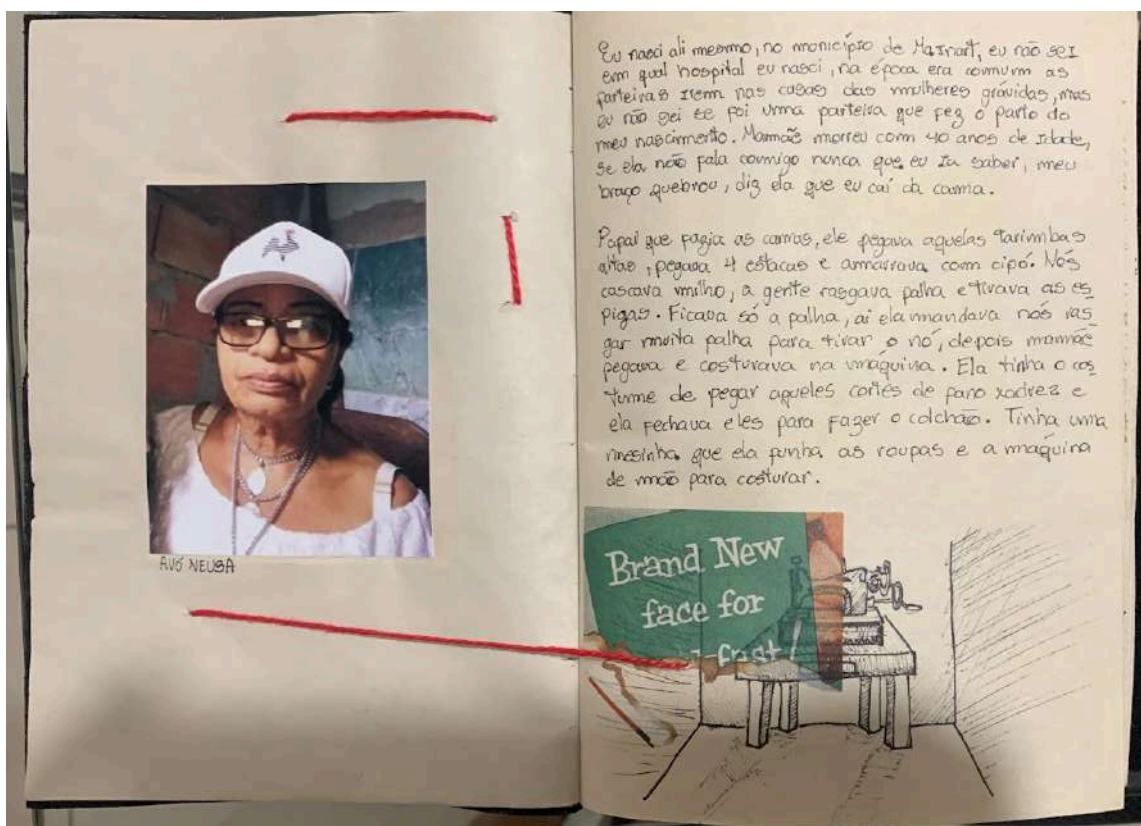 AVÓ NEUSA
Eu nasci ali mesmo, no município de Mairart, eu não sei
em qual hospital eu nasci, na época era comum as
parteiras irem nas casas das mulheres grávidas, mas
eu não sei se foi uma parteira que fez o parto do
meu nascimento. Mamãe morreu com 40 anos de idade,
se ela não fala comigo nunca que eu ia saber, meu
braço quebrou, diz ela que eu caí da cama.
Papai que fazia as camas, ele pegava aquelas tarimbas
altas, pegava 4 estacas e amarrava com cipó. Nós
cascava milho, a gente rasgava palha e tirava as es
pigas. Ficava só a palha, aí ela mandava nós ras
gar muita palha para tirar o nó, depois mamãe
pegava e costurava na máquina. Ela tinha o cos
tume de pegar aqueles cortes de pano xadrez e
ela fechava eles para fazer o colchão. Tinha uma
mesinha que ela punha as roupas e a máquina
de mão para costurar.
Brand New
face for